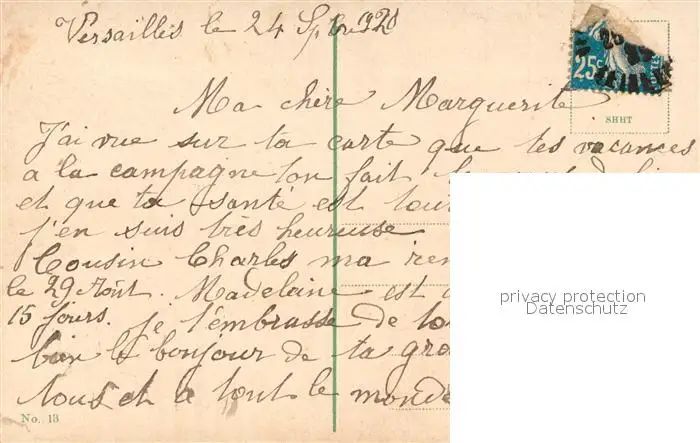 Versailles le 24 Spbre 920
25c
Ma chère Marguerite
SHHT
J'ai vue sur ta carte que tes vacances
a la campagne ton fait
et que ta santé est tout
j'en suis très heureuse
Cousin Charles ma
le 29 Août. Madelaine est
15 jours. je t'embrasse de to
bien le bonjour de ta gra
tous et a tout le monde
No. 13
privacy protection
Datenschutz